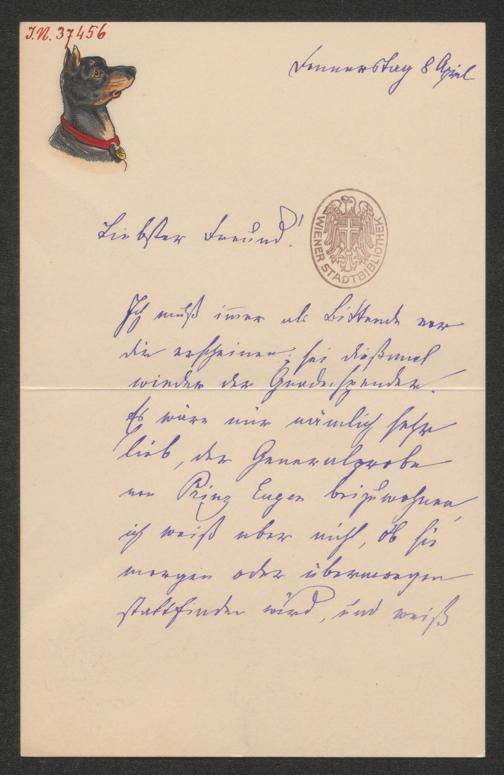 J.N. 37456
Donnerstag 8 April
Liebster Freund!
WIENER STADTBIBLIOTHEK
Ich muß immer als Bittende vor
dir erscheinen; sei dießmal
wieder der Gnadenspender!
Es wäre mir nämlich sehr
lieb, der Generalprobe
von Prinz Eugen beizuwohnen,
ich weiß aber nicht, ob sie
morgen oder übermorgen
stattfinden wird, und weiß